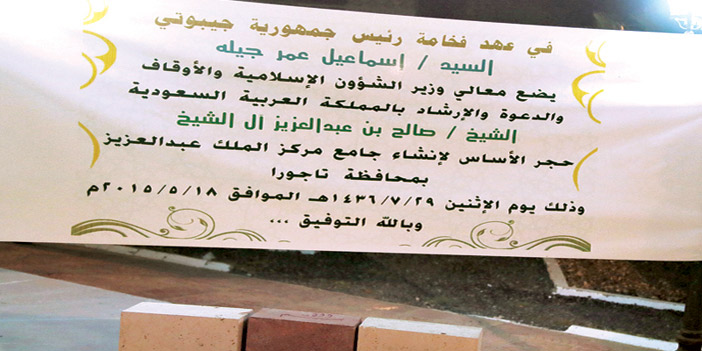 في عهد فخامة رئيس جمهورية جيبوتي
السيد / إسماعيل عمر جيله
يضع معالي وزير الشؤون الإسلامية والأوقاف
والدعوة والإرشاد بالمملكة العربية السعودية
الشيخ / صالح بن عبدالعزيز آل الشيخ
حجر الأساس لإنشاء جامع مركز الملك عبدالعزيز
بمحافظة تاجورا
وذلك يوم الإثنين ١٤٣٦/٧/٢٩هـ الموافق ٢٠١٥/٥/١٨م
وبالله التوفيق ...